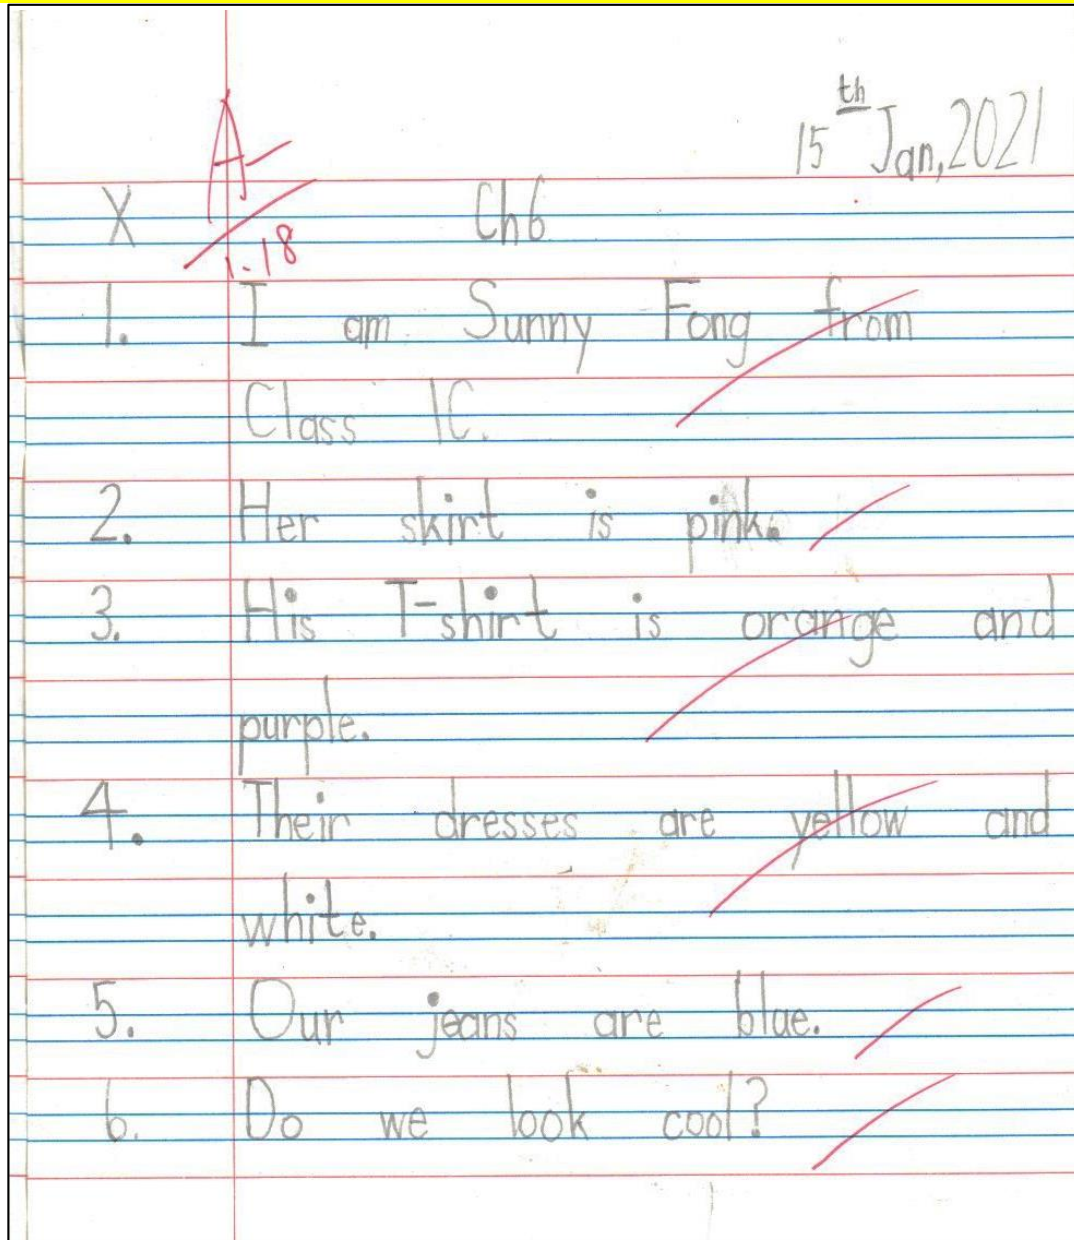 15th Jan, 2021
A-
X Ch6
1.18
1. I am Sunny Fong from
Class 1C.
2. Her skirt is pink.
3. His T-shirt is orange and
purple.
4. Their dresses are yellow and
white.
5. Our jeans are blue.
6. Do we look cool?